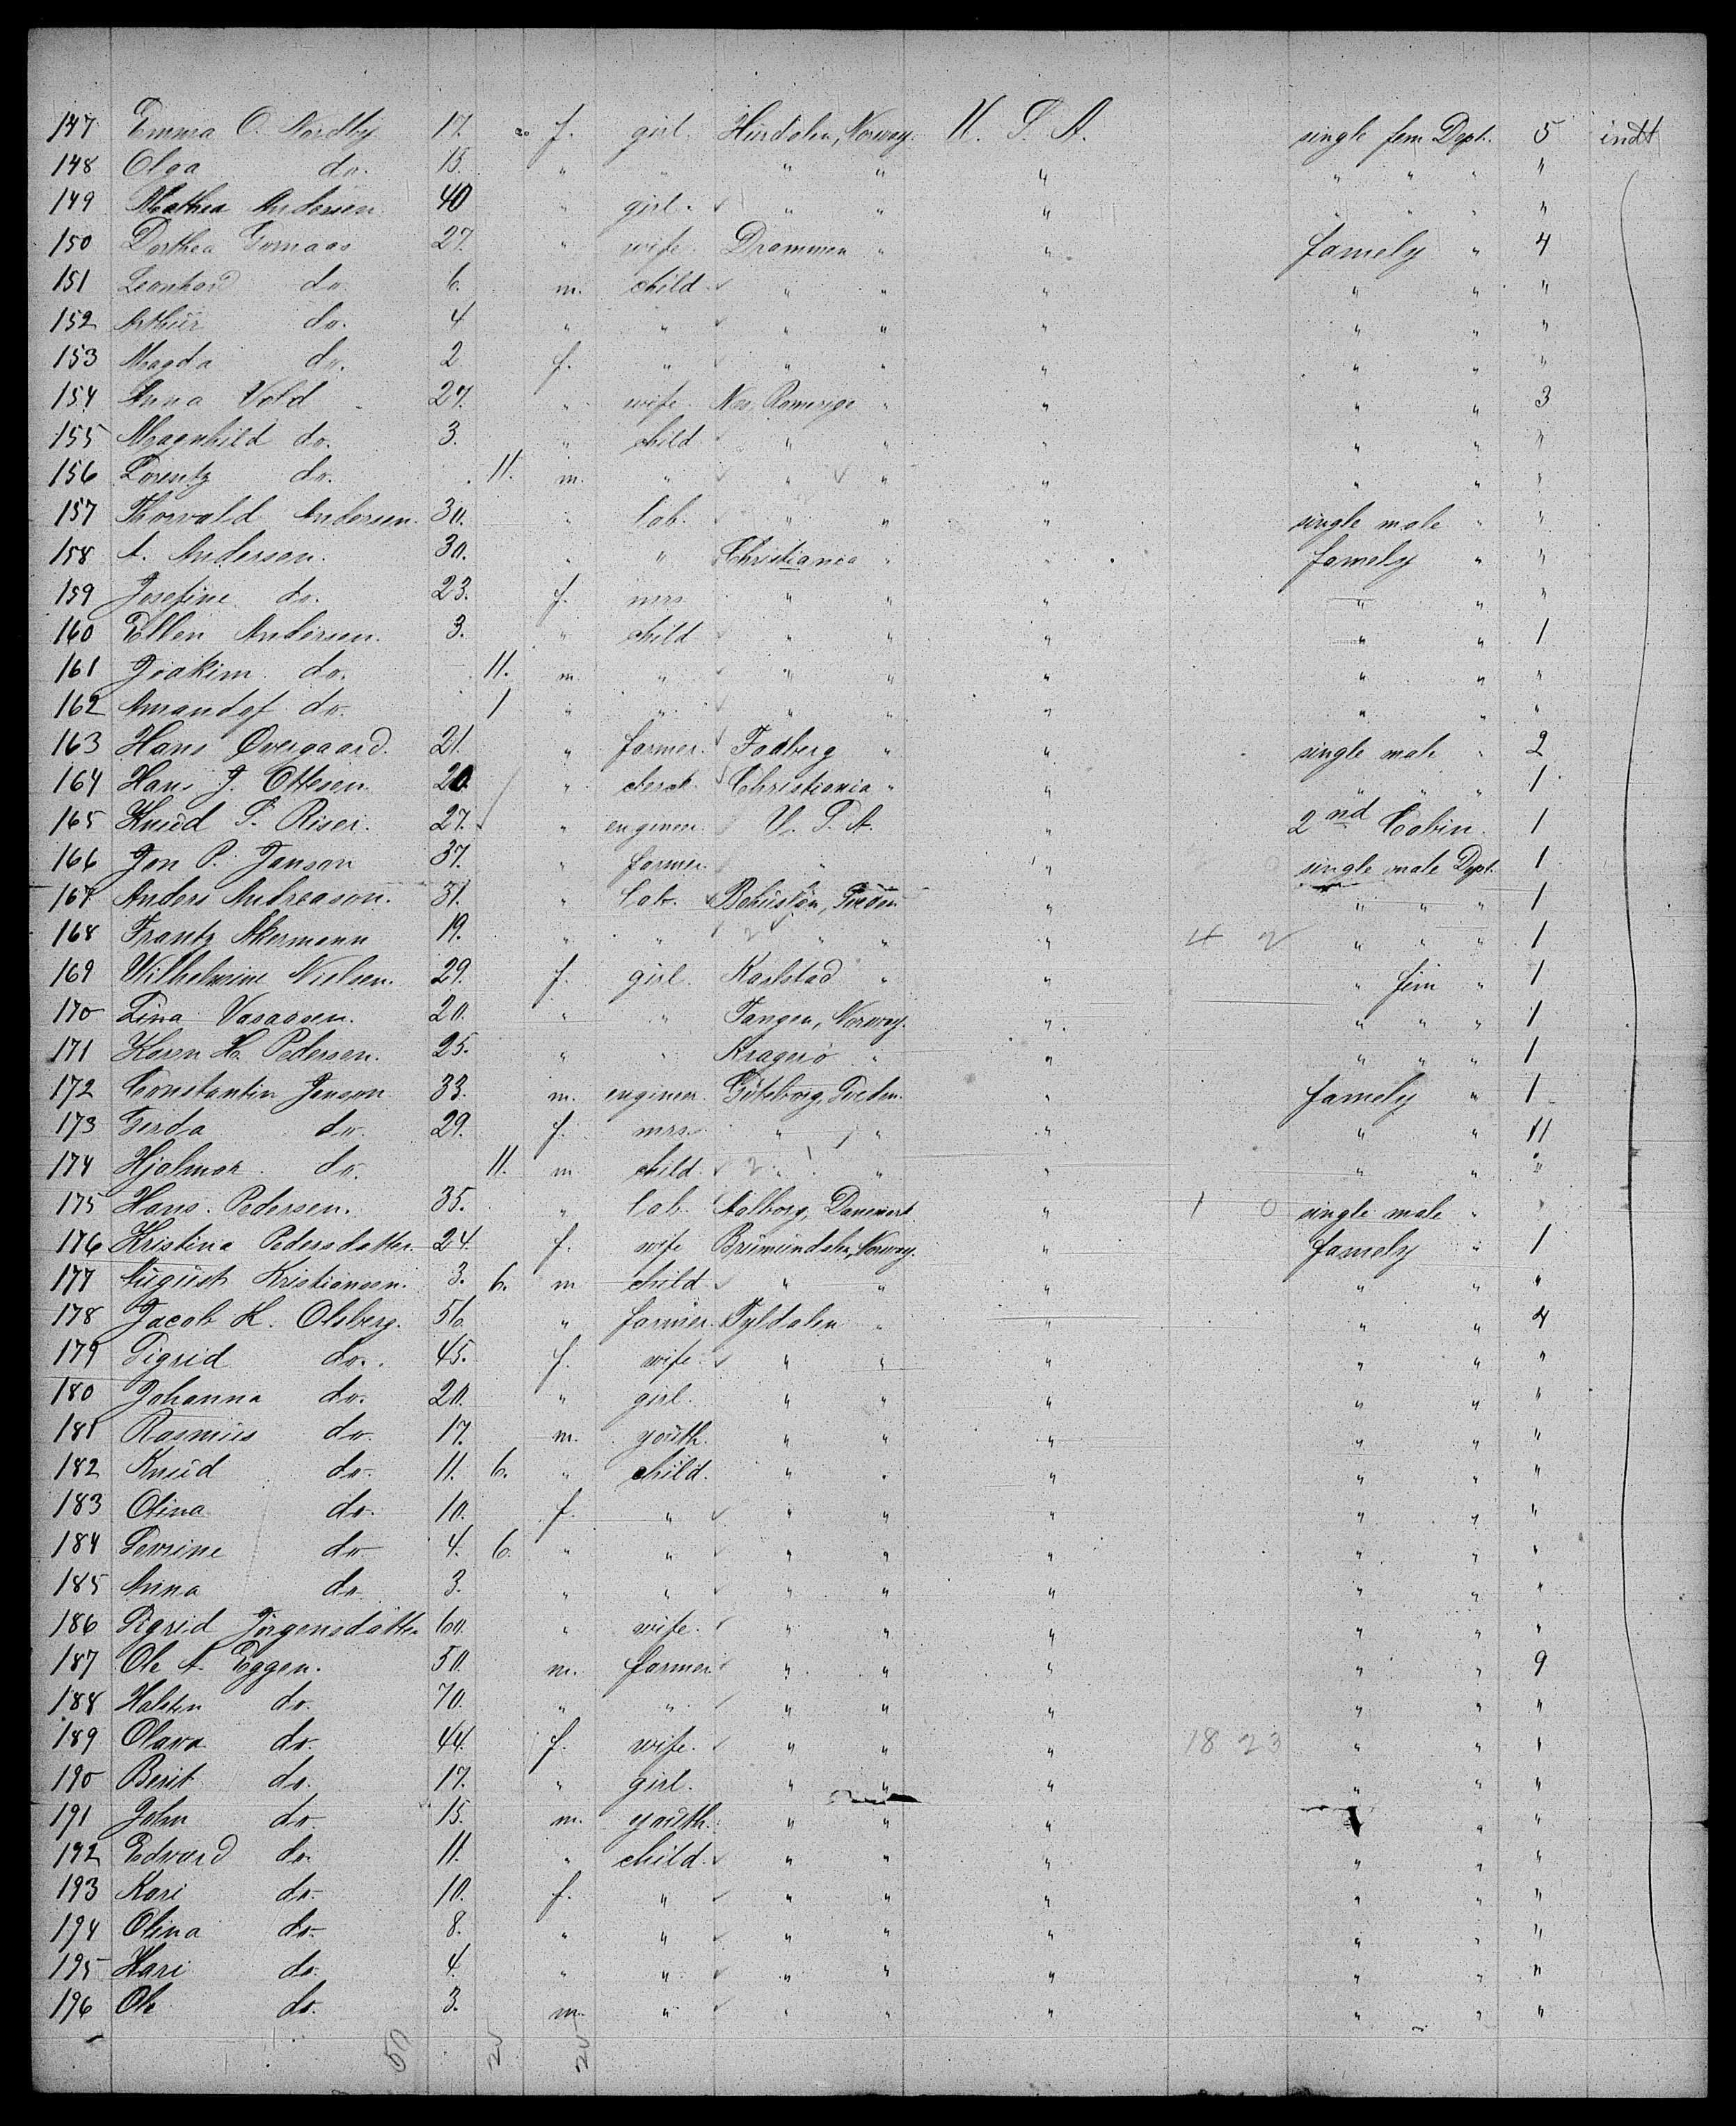 147 Emma O. Nordby 17. f. girl. Hurdalen, Norway. U. S. A. single fem Dept. 5 indt
148 Olga do. 15. " " " " " " " " "
149 Mathea Andersen 40 " girl. " " " " " " "
150 Dorthea 27. " wife. Drammen " " famely " 4
151 Leonhard do. 6. m. child. " " " " " "
152 Arthur do. 4 " " " " " " " "
153 Magda do. 2 f. " " " " " " "
154 Anna Vold 27. " wife. Nes, Romerige " " " " 3
155 Magnhild do. 3. " child " " " " " "
156 Lorentz do. 11. m. " " " " " " "
157 Thorvald Andersen. 30. " lab. " " " single male " "
158 A. Andersen. 30. " " Christiania " " famely " "
159 Josefine do. 23. f. mrs " " " " " "
160 Ellen Andersen. 3. " child " " " " " 1
161 Joakim do. 11. m " " " " " " "
162 do. 1 " " " " " " " "
163 Hans Overgaard. 21. " farmer. Fodberg " " single male " 2
164 Hans J. Ottesen 20. " Christiania " " " " " 1
165 Knud S. Riser. 27. " engineer. U. S. A. " 2nd Cabin. 1
166 Jon P. Janson 37. " farmer. " " single male Dept. 1
167 Anders Andreason. 31. " lab. Bohuslän, Sveden " " " " 1
168 Frantz Akermann 19. " " " " " 4 2 " " " 1
169 Wilhelmine Nielsen. 29. f. girl Karlstad " " " fem " 1
170 Lina Vasaasen. 20. " " Tangen, Norway. " " " " 1
171 Karen H. Pedersen. 25. " " Kragerö " " " " " 1
172 Constantin Janson 33. m. engineer. Göteborg, Sveden. " famely " 1
173 Gerda do. 29. f. mrs. " " " " " 11
174 Hjalmar. do. 11. m child. " " " " " "
175 Hans. Pedersen. 35. " lab. Aalborg, Danemark " 1 0 single male " "
176 Kristina Pedersdatter. 24. f. wife Brumundalen, Norway. " famely " 1
177 August Kristiansen. 3. 6. m child " " " " " "
178 Jacob K. Olsberg. 56 " farmer. Tyldalen " " " " 4
179 Sigrid do. 45. f. wife. " " " " " "
180 Johanna do. 20. " girl. " " " " " "
181 Rasmus do. 17. m. youth. " " " " " "
182 Knud do. 11. 6. " child. " " " " " "
183 Olina do. 10. f. " " " " " " "
184 Sevrine do 4. 6. " " " " " " " "
185 Anna do. 3. " " " " " " " "
186 Sigrid Jörgensdatter 60. " wife. " " " " " "
187 Ole A. Eggen. 50. m. farmer " " " " " 9
188 Halsten do. 70. " " " " " " " "
189 Olava do. 44. f. wife. " " " 18 23 " " "
190 Berit do. 17. " girl. " " " " " "
191 John do. 15. m. youth. " " " " " "
192 Edward do. 11. " child. " " " " " "
193 Kari do. 10. f. " " " " " " "
194 Olina do. 8. " " " " " " " "
195 Kari do. 4. " " " " " " " "
196 Ole do. 3. m. " " " " " " "
50